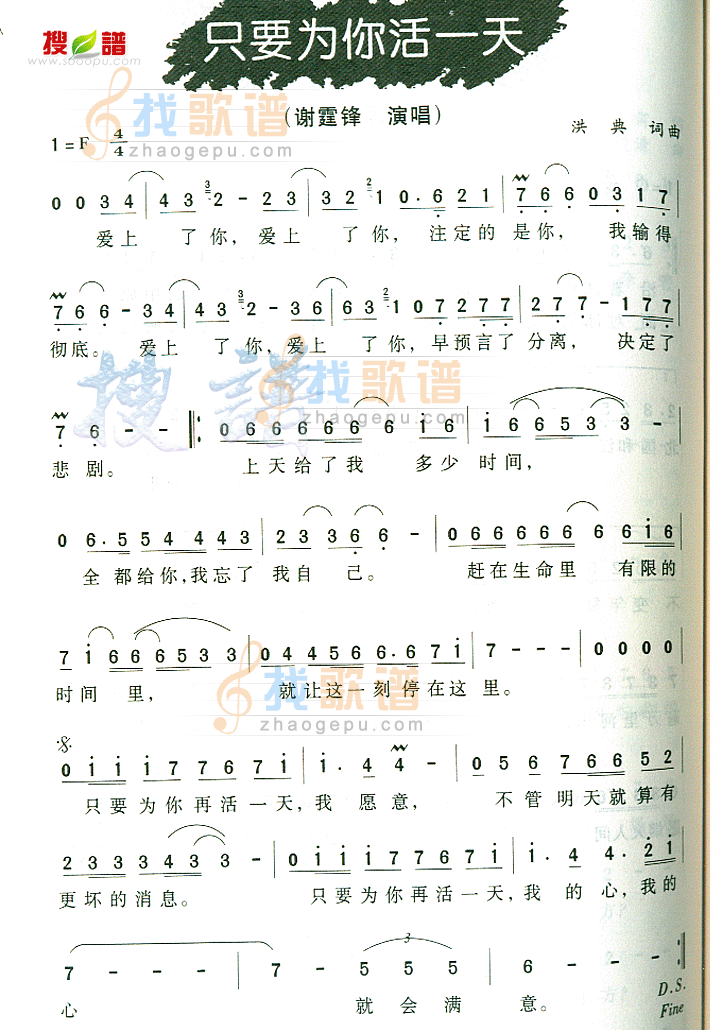 搜谱
www.sooopu.com
只要为你活一天
(谢霆锋 演唱)
洪典 词曲
1=F 4/4
0 0 3 4 | 4 3 2 - 2 3 | 3 2 1 0. 6 2 1 | 7 6 6 0 3 1 7 |
爱上 了你, 爱上 了你, 注定的 是你, 我输得
7 6 6 - 3 4 | 4 3 2 - 3 6 | 6 3 1 0 7 2 7 7 | 2 7 7 - 1 7 7 |
彻底。 爱上 了你,爱上 了你,早预言了分离, 决定了
7 6 - - |: 0 6 6 6 6 6 6 i 6 | i 6 6 5 3 3 - |
悲剧。 上天给了我 多少 时间,
0 6. 5 5 4 4 4 3 | 2 3 3 6 6 - | 0 6 6 6 6 6 6 6 i 6 |
全都给你,我忘了 我自己。 赶在生命里 有限的
7 i 6 6 6 5 3 3 | 0 4 4 5 6 6. 6 7 i | 7 - - - | 0 0 0 0 |
时间 里, 就让这一刻停在这里。
0 i i i 7 7 6 7 i | i. 4 4 - | 0 5 6 7 6 6 5 2 |
只要为你再活一天,我 愿意, 不管明天就算有
2 3 3 3 3 4 3 3 - | 0 i i i 7 7 6 7 i | i. 4 4. 2 i |
更坏的消息。 只要为你再活一天,我 的 心,我的
7 - - - | 7 - 5 5 5 | 6 - - - :|
心 就会满 意。
D.S.
Fine
找歌谱
zhaogepu.com
搜谱
找歌谱
zhaogepu.com
找歌谱
zhaogepu.com